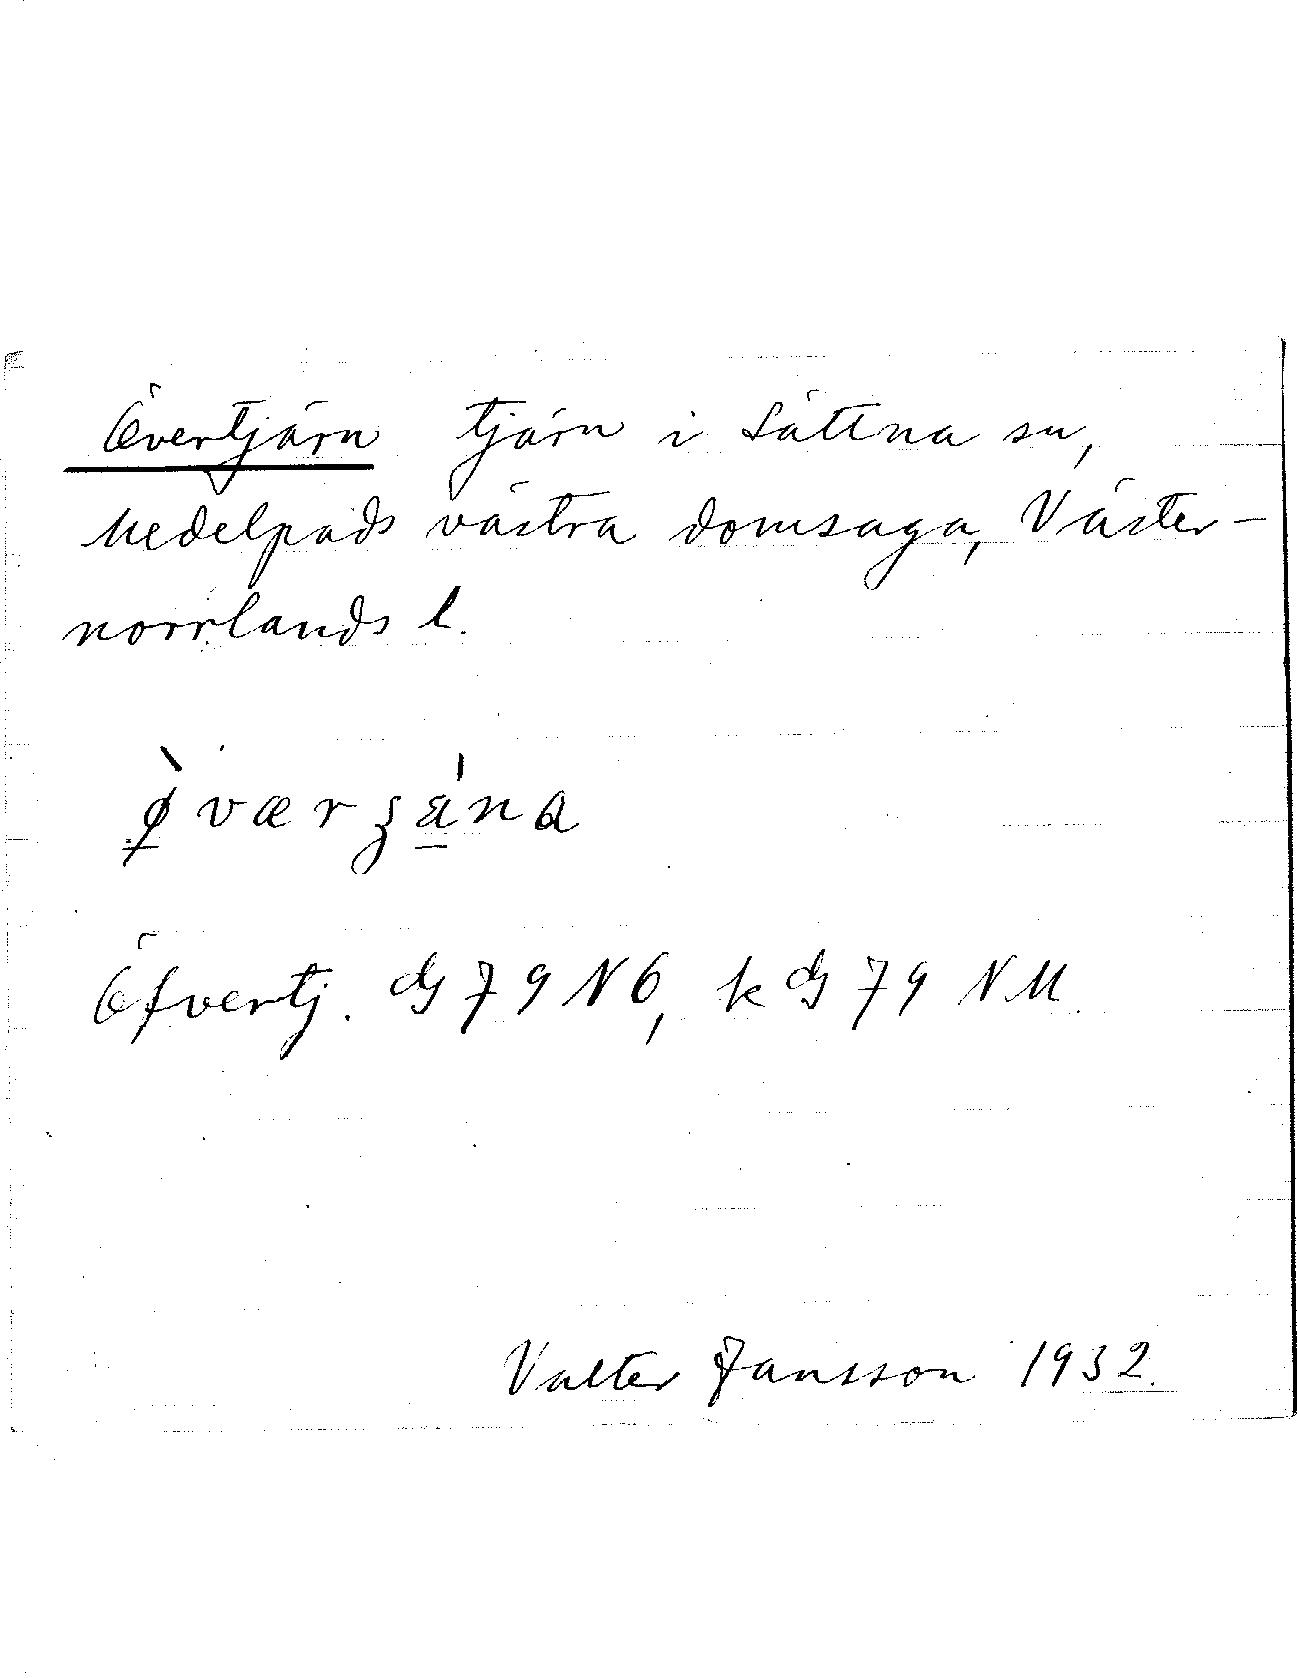 Övertjärn tjärn i Sättna sn,
Medelpads västra domsaga, Väster-
norrlands l.
Öfvertj. dg 79 NÖ, k dg 79 NM
Valter Jansson 1932.